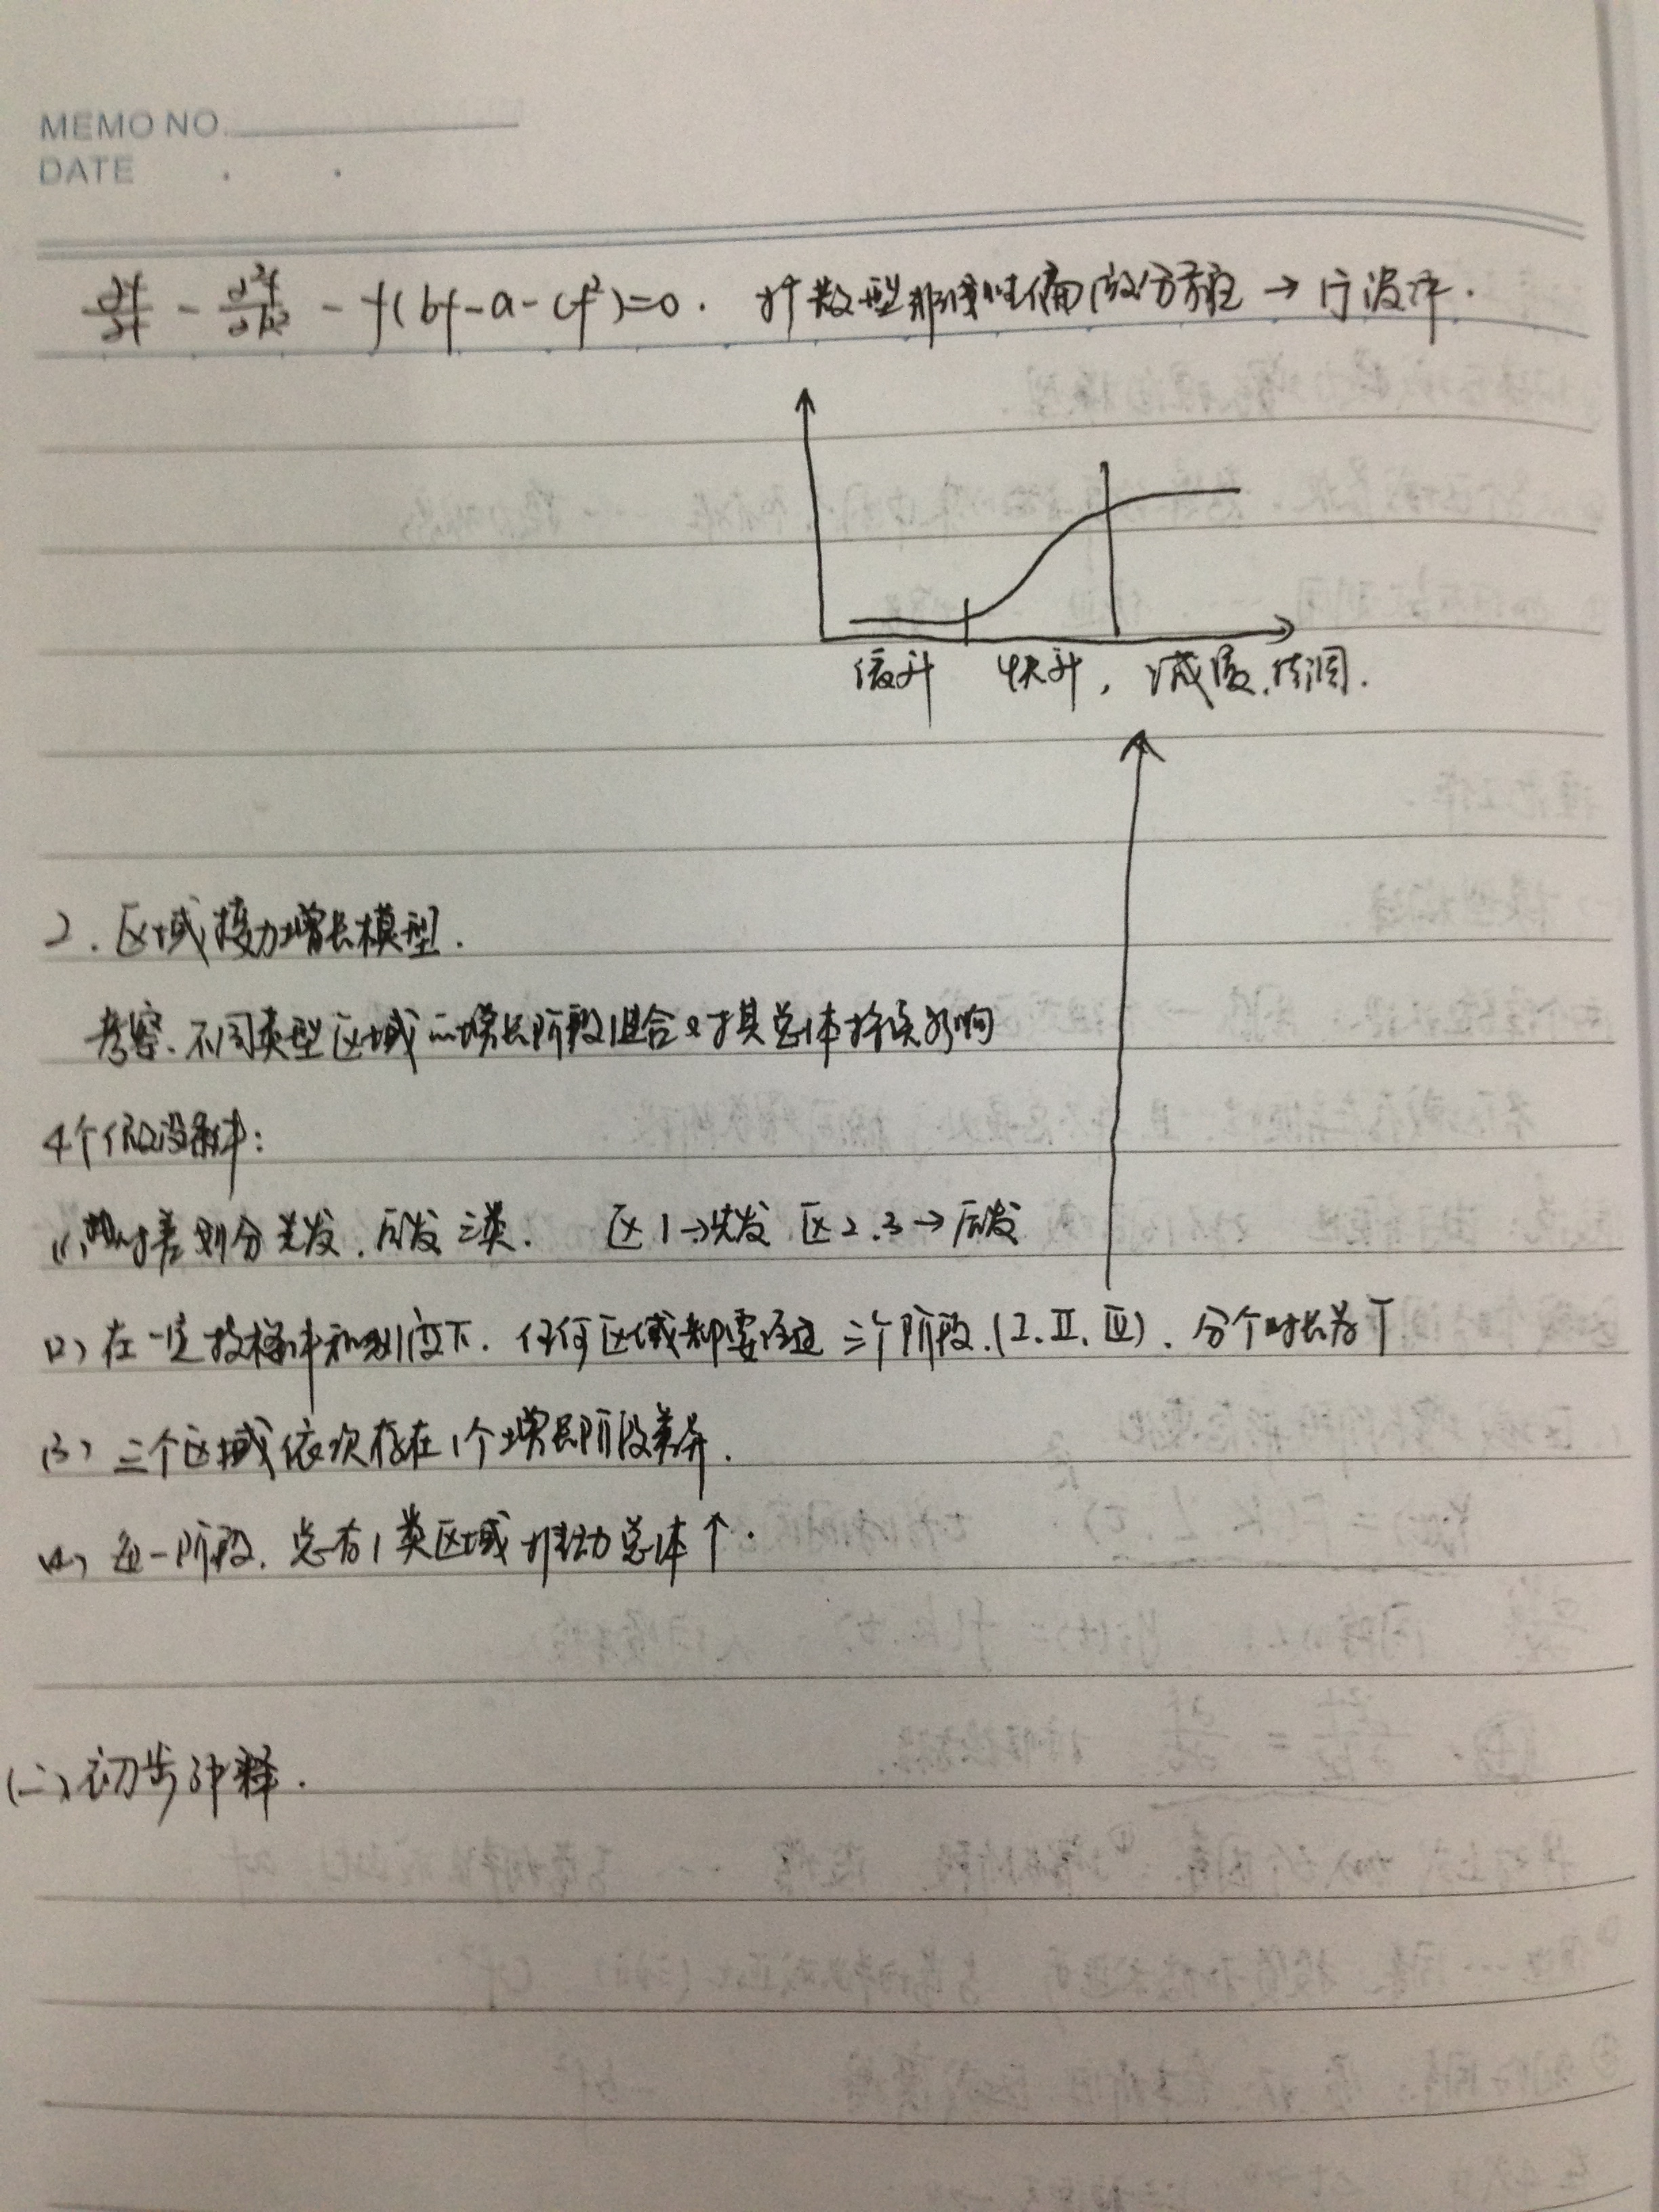 MEMO NO.
DATE . .
∂f/∂t - ∂²f/∂k² - f(bf-a-cf²)=0. 扩散型非线性偏微分方程 → 行波解.
缓升 快升, 减缓.
2. 区域接力增长模型.
考察. 不同类型区域的增长阶段组合对其总体持续影响
4个假设条件:
(1) 划分先发, 后发三类. 区1→先发 区2.3→后发
(2) 在一定技术和制度下. 任何区域都要经过三个阶段.(I.II.III). 分个时长为T
(3) 三个区域依次存在1个增长阶段差异.
(4) 每一阶段, 总有1类区域推动总体↑.
(二) 初步解释.